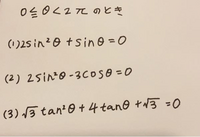 0≦θ<2πのとき
(1)2sin²θ+sinθ=0
(2) 2sin²θ-3cosθ=0
(3)√3 tan²θ+4tanθ+√3=0